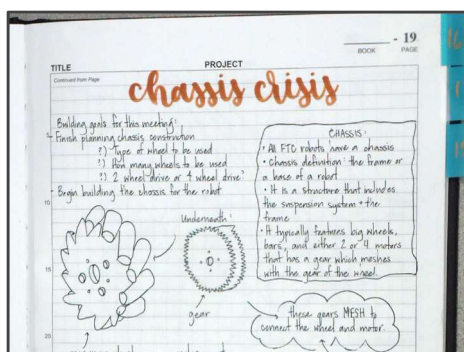 - 19
BOOK PAGE
TITLE PROJECT
Continued from Page
chassis crisis
Building goals for this meeting:
- Finish planning chassis construction
?) Type of wheel to be used
?) How many wheels to be used
?) 2 wheel drive or 4 wheel drive?
- Begin building the chassis for the robot
5
10
15
20
CHASSIS:
• All FTC robots have a chassis
• Chassis definition: the frame or
a base of a robot
• It is a structure that includes
the suspension system + the
frame
• It typically features big wheels,
bars, and either 2 or 4 motors
that has a gear which meshes
with the gear of the wheel.
Underneath:
gear
these gears MESH to
connect the wheel and motor.
16